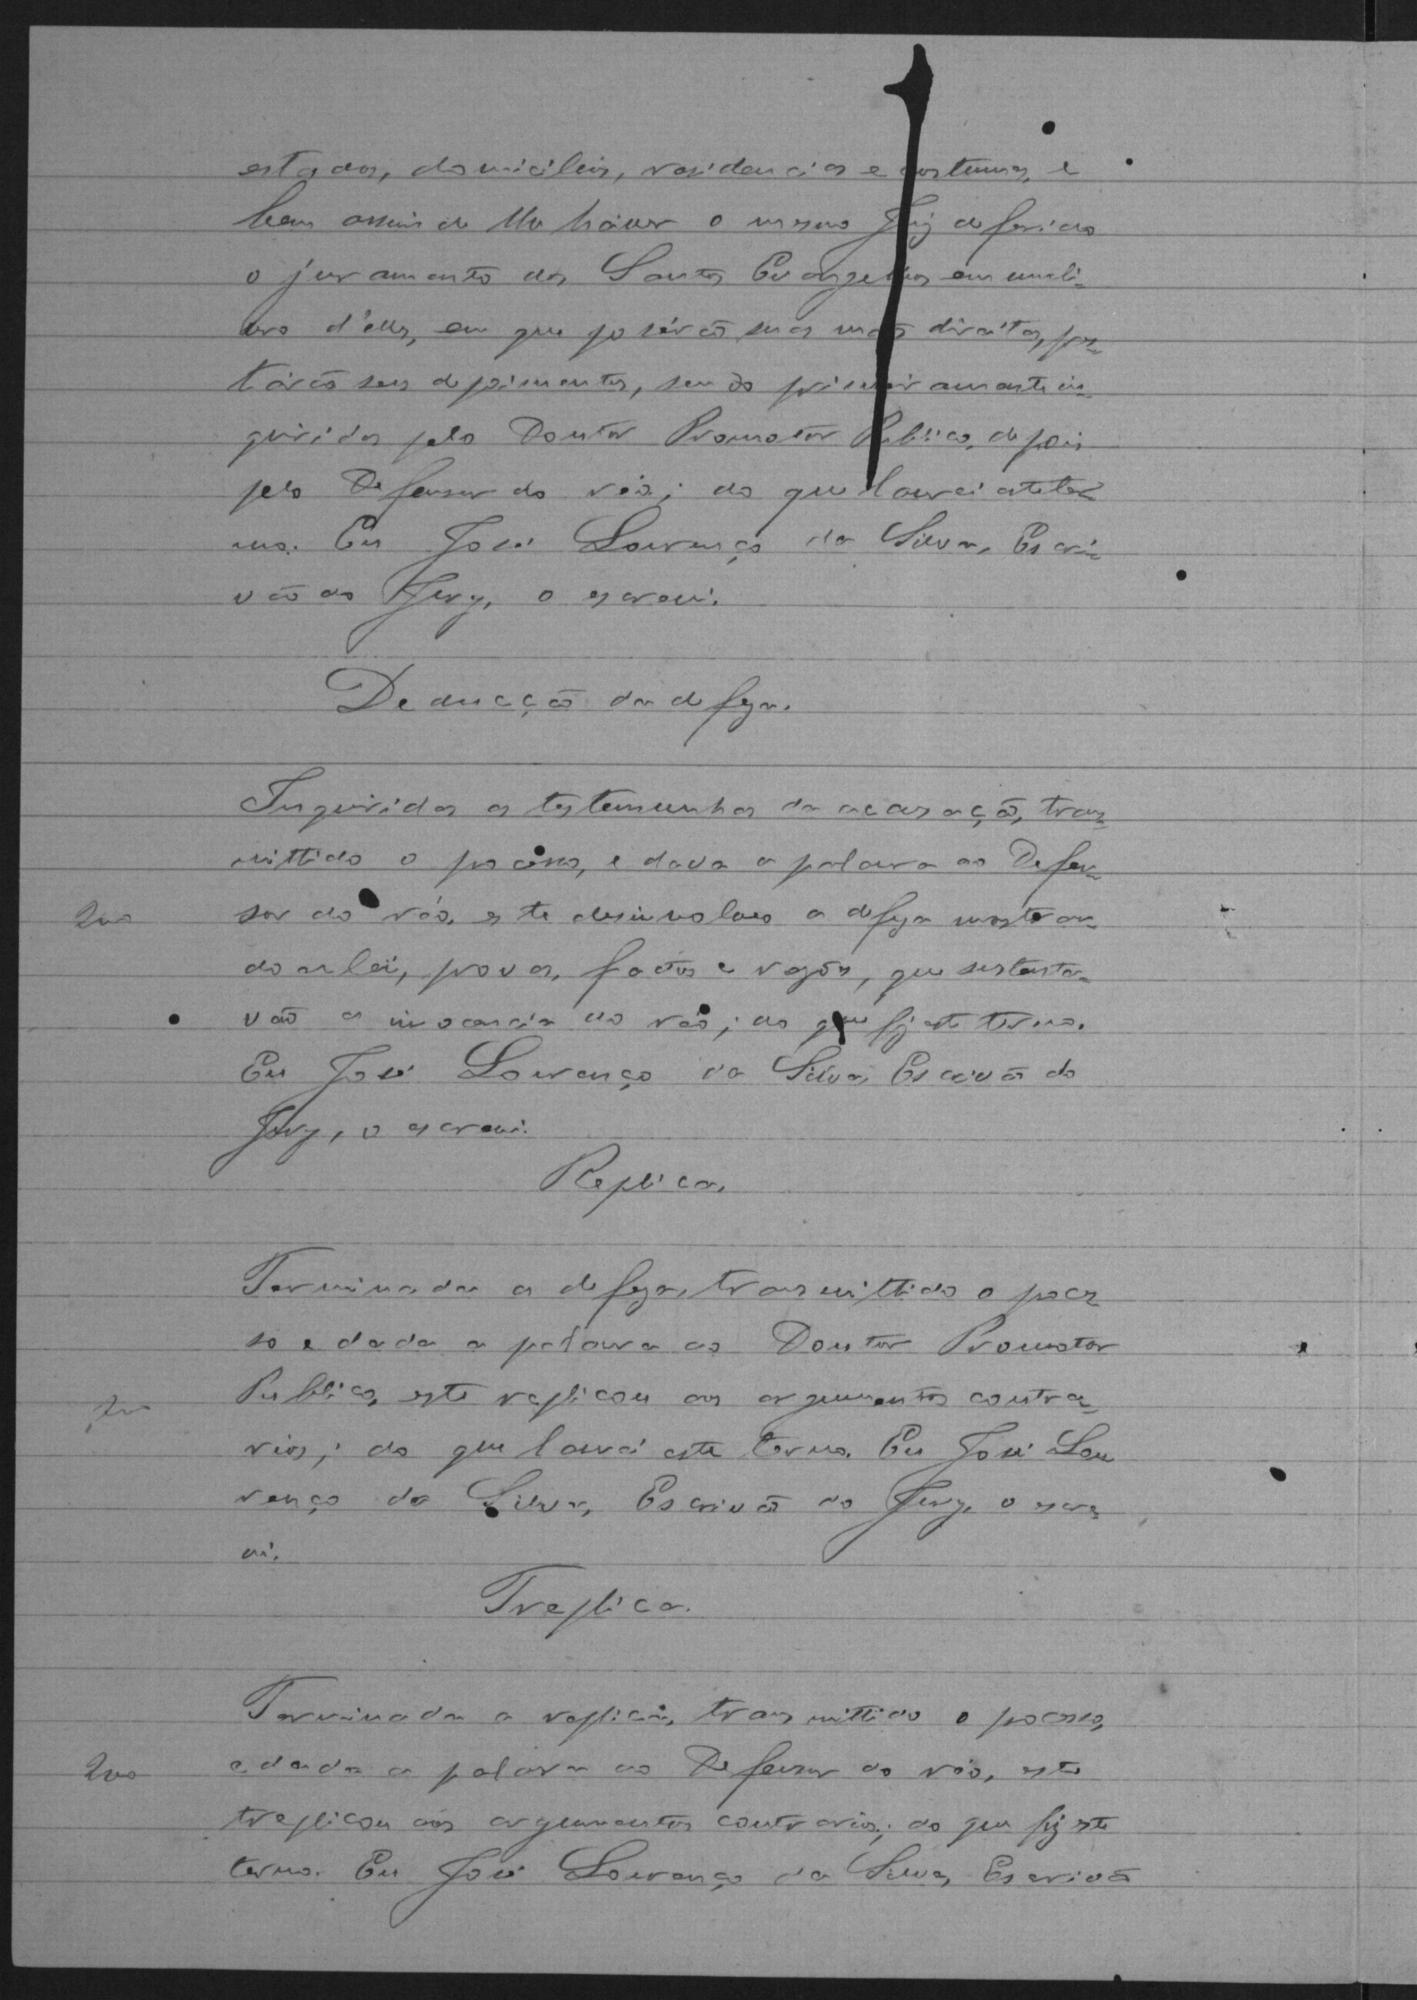 estados, domicilios, residencias e costumes, e
bem assim de lhe haver o mesmo Juiz deferido
o juramento dos Santos Evangelhos em um li-
vro d'elles, em que poserão suas mãos direitas, pres-
tárão seus depoimentos, sendo primeiramente in-
quiridos pelo Doutor Promotor Publico, depois
pelo Defensor do réo; do que lavrei este ter-
mo. Eu José Lourenço da Silva, Escri-
vão do Jury, o escrevi.
Deducção da defeza.
Inquiridas as testemunhas da accusação, trans-
mittido o processo, e dada a palavra ao Defen-
200 sor do réo, este desinvolveo a defeza mostran-
do a lei, provas, factos e razões, que sustenta-
vão a innocencia do réo; do que fiz este termo.
Eu José Lourenço da Silva, Escrivão do
Jury, o escrevi.
Replica.
Terminada a defeza, transmittido o proces-
so e dada a palavra ao Doutor Promotor
Publico, este replicou aos argumentos contra-
rios; do que lavrei este termo. Eu José Lou
renço da Silva, Escrivão do Jury, o escre-
vi.
Treplica.
Terminada a replica, transmittido o processo,
200 e dada a palavra ao Defensor do réo, este
treplicou aos argumentos contrarios; do que fiz este
termo. Eu José Lourenço da Silva, Escrivão